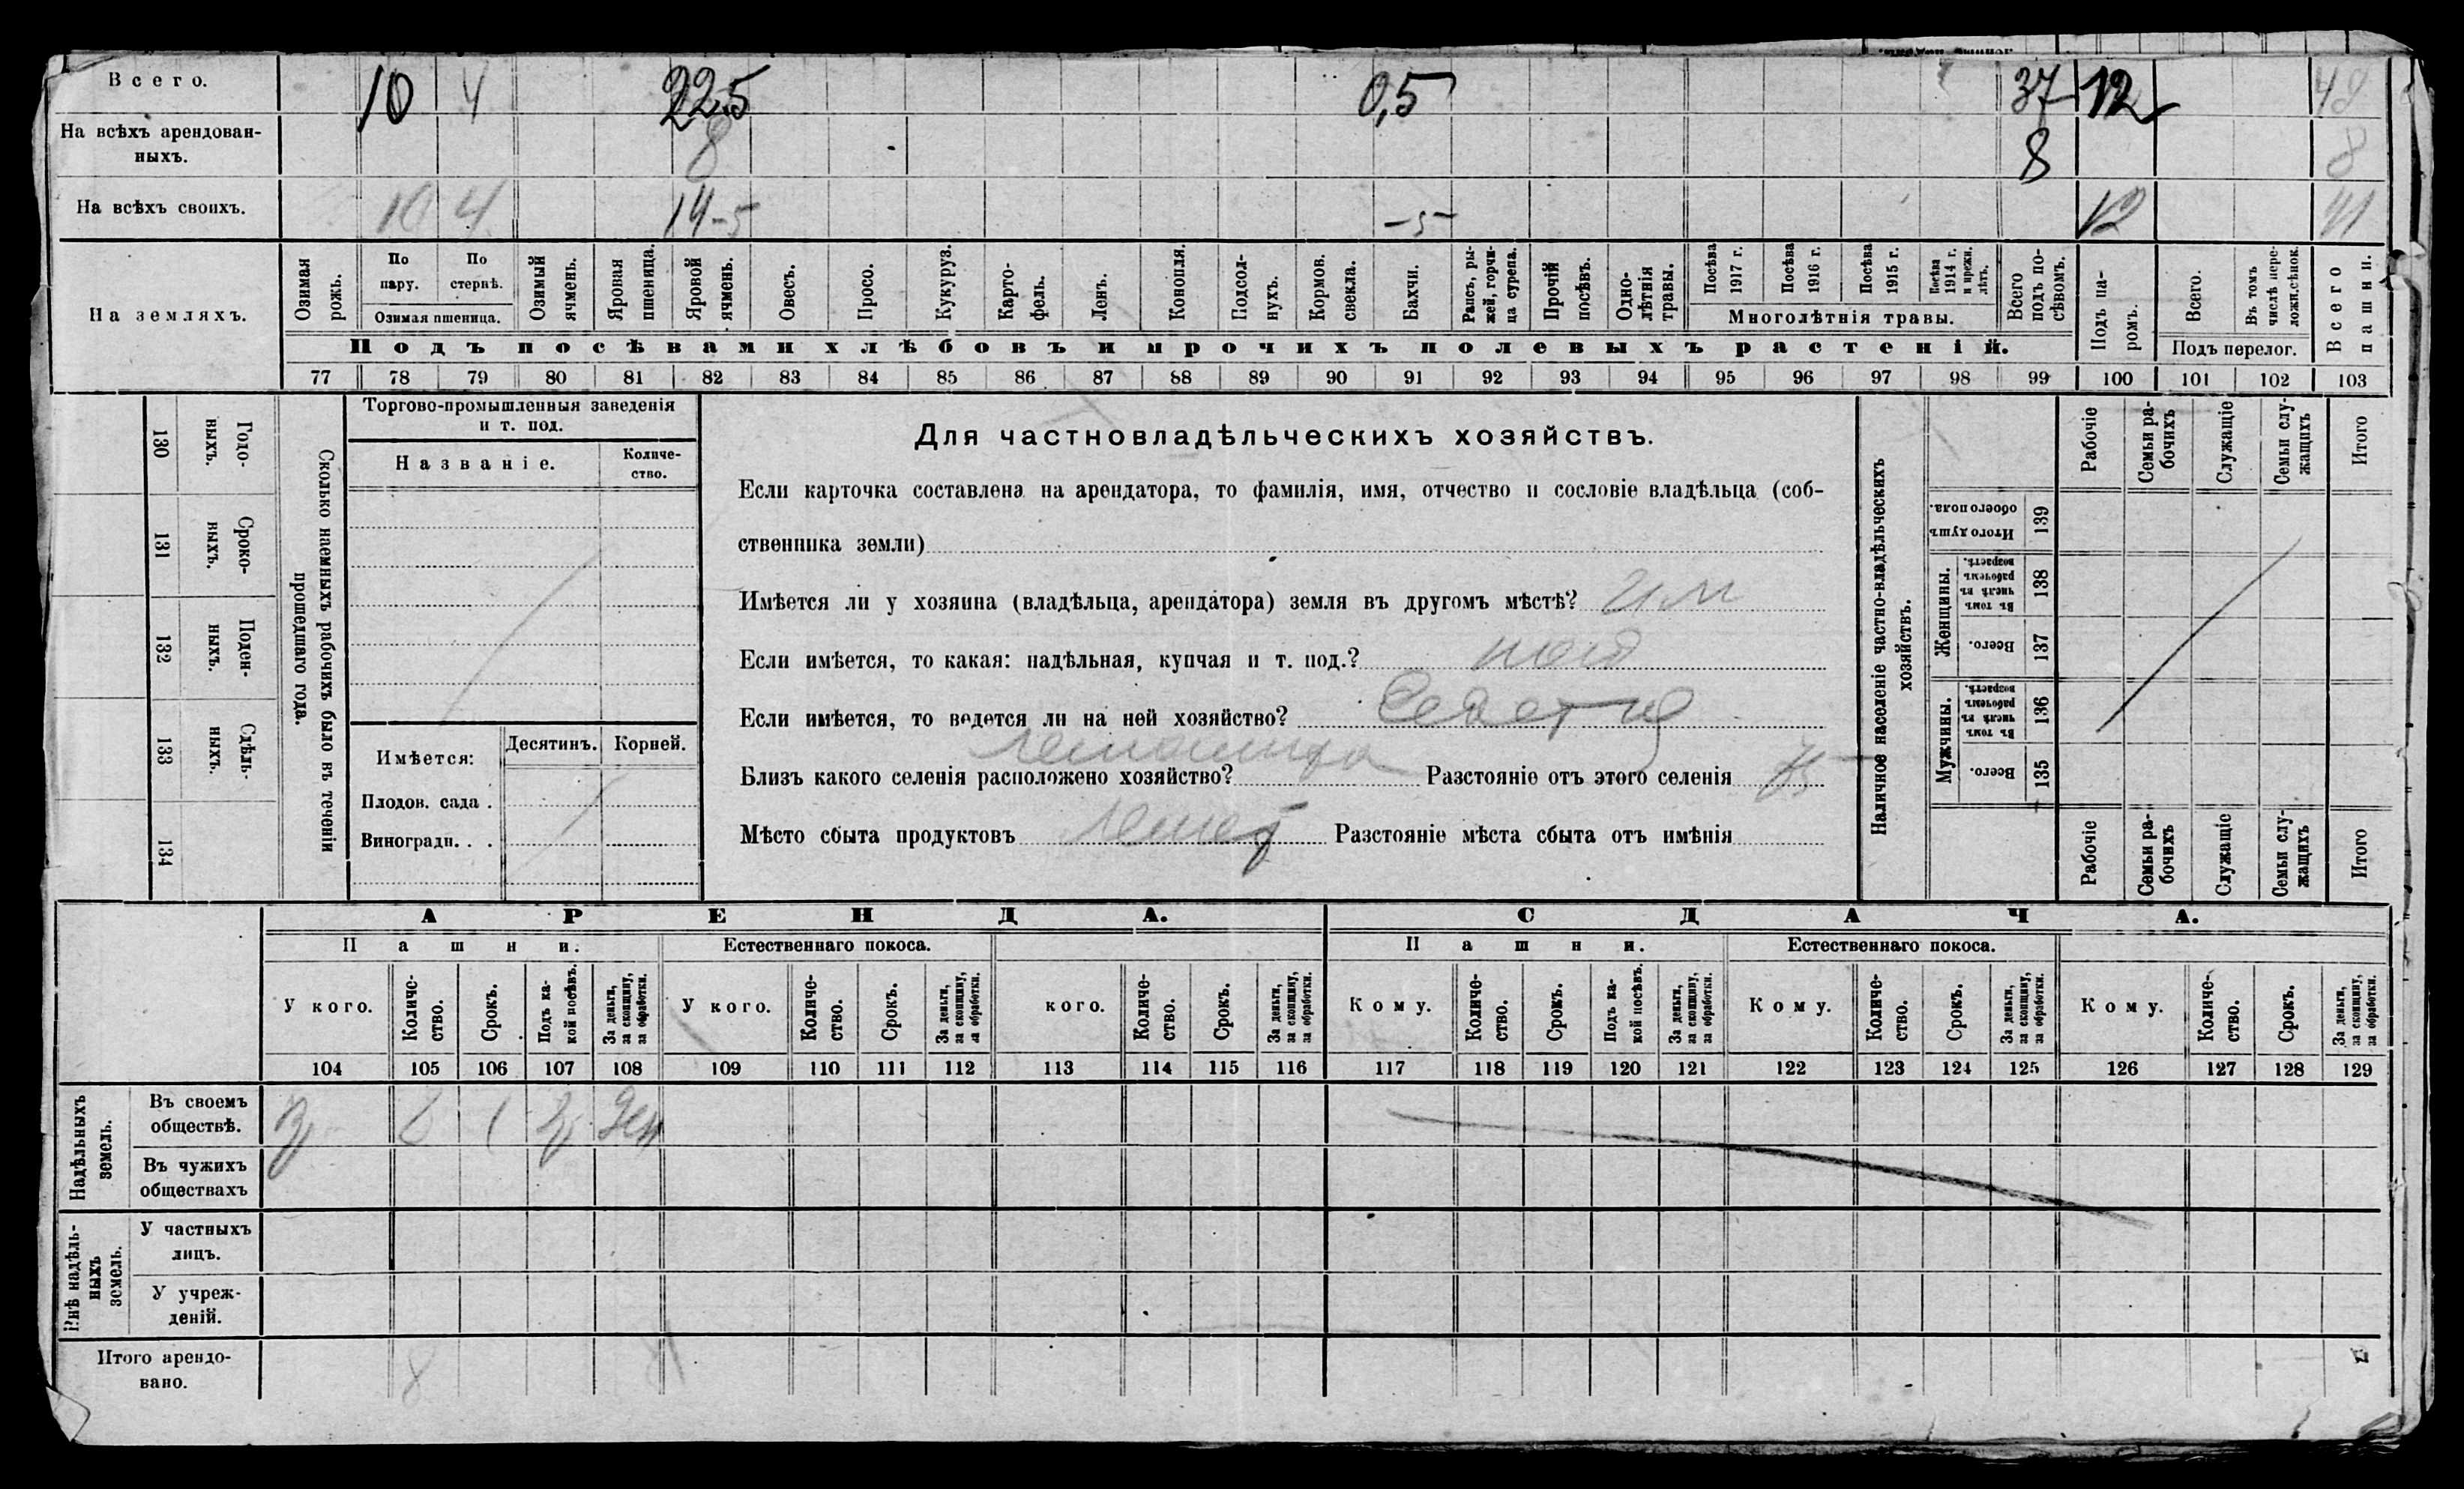 Всего. 10 4 22.5 0,5 37 12 49
На всѣхъ арендован-
ныхъ. 8 8 8
На всѣхъ своихъ. 10 4 14-5 -5- 12 41
На земляхъ.
Озимая рожь.
По пару.
По стернѣ.
Озимая пшеница.
Озимый ячмень.
Яровая пшеница.
Яровой ячмень.
Овесъ.
Просо.
Кукуруз.
Карто-
фель.
Ленъ.
Конопля.
Подсол-
нухъ.
Кормов. свекла.
Бахчи.
Рапсъ, ры-
жей, горчи-
ца сурепа.
Прочій посѣвъ.
Одно-
лѣтнія травы.
Посѣва 1917 г.
Посѣва 1916 г.
Посѣва 1915 г.
Посѣва 1914 г. и прежн. лѣтъ.
Многолѣтнія травы.
Всего подъ по-
сѣвомъ.
Подъ па-
ромъ.
Всего.
Въ томъ числѣ пере-
ложн. сѣнок.
Подъ перелог.
Всего пашни.
Подъ посѣвами хлѣбовъ и прочихъ полевыхъ растеній.
77 78 79 80 81 82 83 84 85 86 87 88 89 90 91 92 93 94 95 96 97 98 99 100 101 102 103
130 Годо-
ныхъ.
131 Сроко-
ныхъ.
132 Поден-
ныхъ.
133 Сдѣль-
ныхъ.
134
Сколько наемныхъ рабочихъ было въ теченіи
прошедшаго года.
Торгово-промышленныя заведенія
и т. под.
Названіе.
Количе-
ство.
Имѣется:
Десятинъ. Корней.
Плодов. сада .
Виноградн. . .
Для частновладѣльческихъ хозяйствъ.
Если карточка составлена на арендатора, то фамилія, имя, отчество и сословіе владѣльца (соб-
ственника земли)
Имѣется ли у хозяина (владѣльца, арендатора) земля въ другомъ мѣстѣ?
Если имѣется, то какая: надѣльная, купчая и т. под.?
Если имѣется, то ведется ли на ней хозяйство?
Близъ какого селенія расположено хозяйство? Разстояніе отъ этого селенія
Мѣсто сбыта продуктовъ Разстояніе мѣста сбыта отъ имѣнія
Наличное населеніе частно-владѣльческихъ
хозяйствъ.
Рабочіе
Семьи ра-
бочихъ
Служащіе
Семьи слу-
жащихъ
Итого
139 Итого душъ обоего пола.
Женщины.
138 Въ томъ числѣ въ рабочемъ возрастѣ.
137 Всего.
Мужчины.
136 Въ томъ числѣ въ рабочемъ возрастѣ.
135 Всего.
Рабочіе
Семьи ра-
бочихъ
Служащіе
Семьи слу-
жащихъ
Итого
АРЕНДА. СДАЧА.
Пашни. Естественнаго покоса. Пашни. Естественнаго покоса.
У кого.
Количе-
ство.
Срокъ.
Подъ ка-
кой посѣвъ.
За деньги, за скопщину, за обработки.
У кого.
Количе-
ство.
Срокъ.
За деньги, за скопщину, за обработки.
кого.
Количе-
ство.
Срокъ.
За деньги, за скопщину, за обработки.
Кому.
Количе-
ство.
Срокъ.
Подъ ка-
кой посѣвъ.
За деньги, за скопщину, за обработки.
Кому.
Количе-
ство.
Срокъ.
За деньги, за скопщину, за обработки.
Кому.
Количе-
ство.
Срокъ.
За деньги, за скопщину, за обработки.
104 105 106 107 108 109 110 111 112 113 114 115 116 117 118 119 120 121 122 123 124 125 126 127 128 129
Надѣльныхъ
земель.
Въ своемъ
обществѣ.
Въ чужихъ
обществахъ
Внѣ надѣль-
ныхъ
земель.
У частныхъ
лицъ.
У учреж-
деній.
Итого арендо-
вано. 8